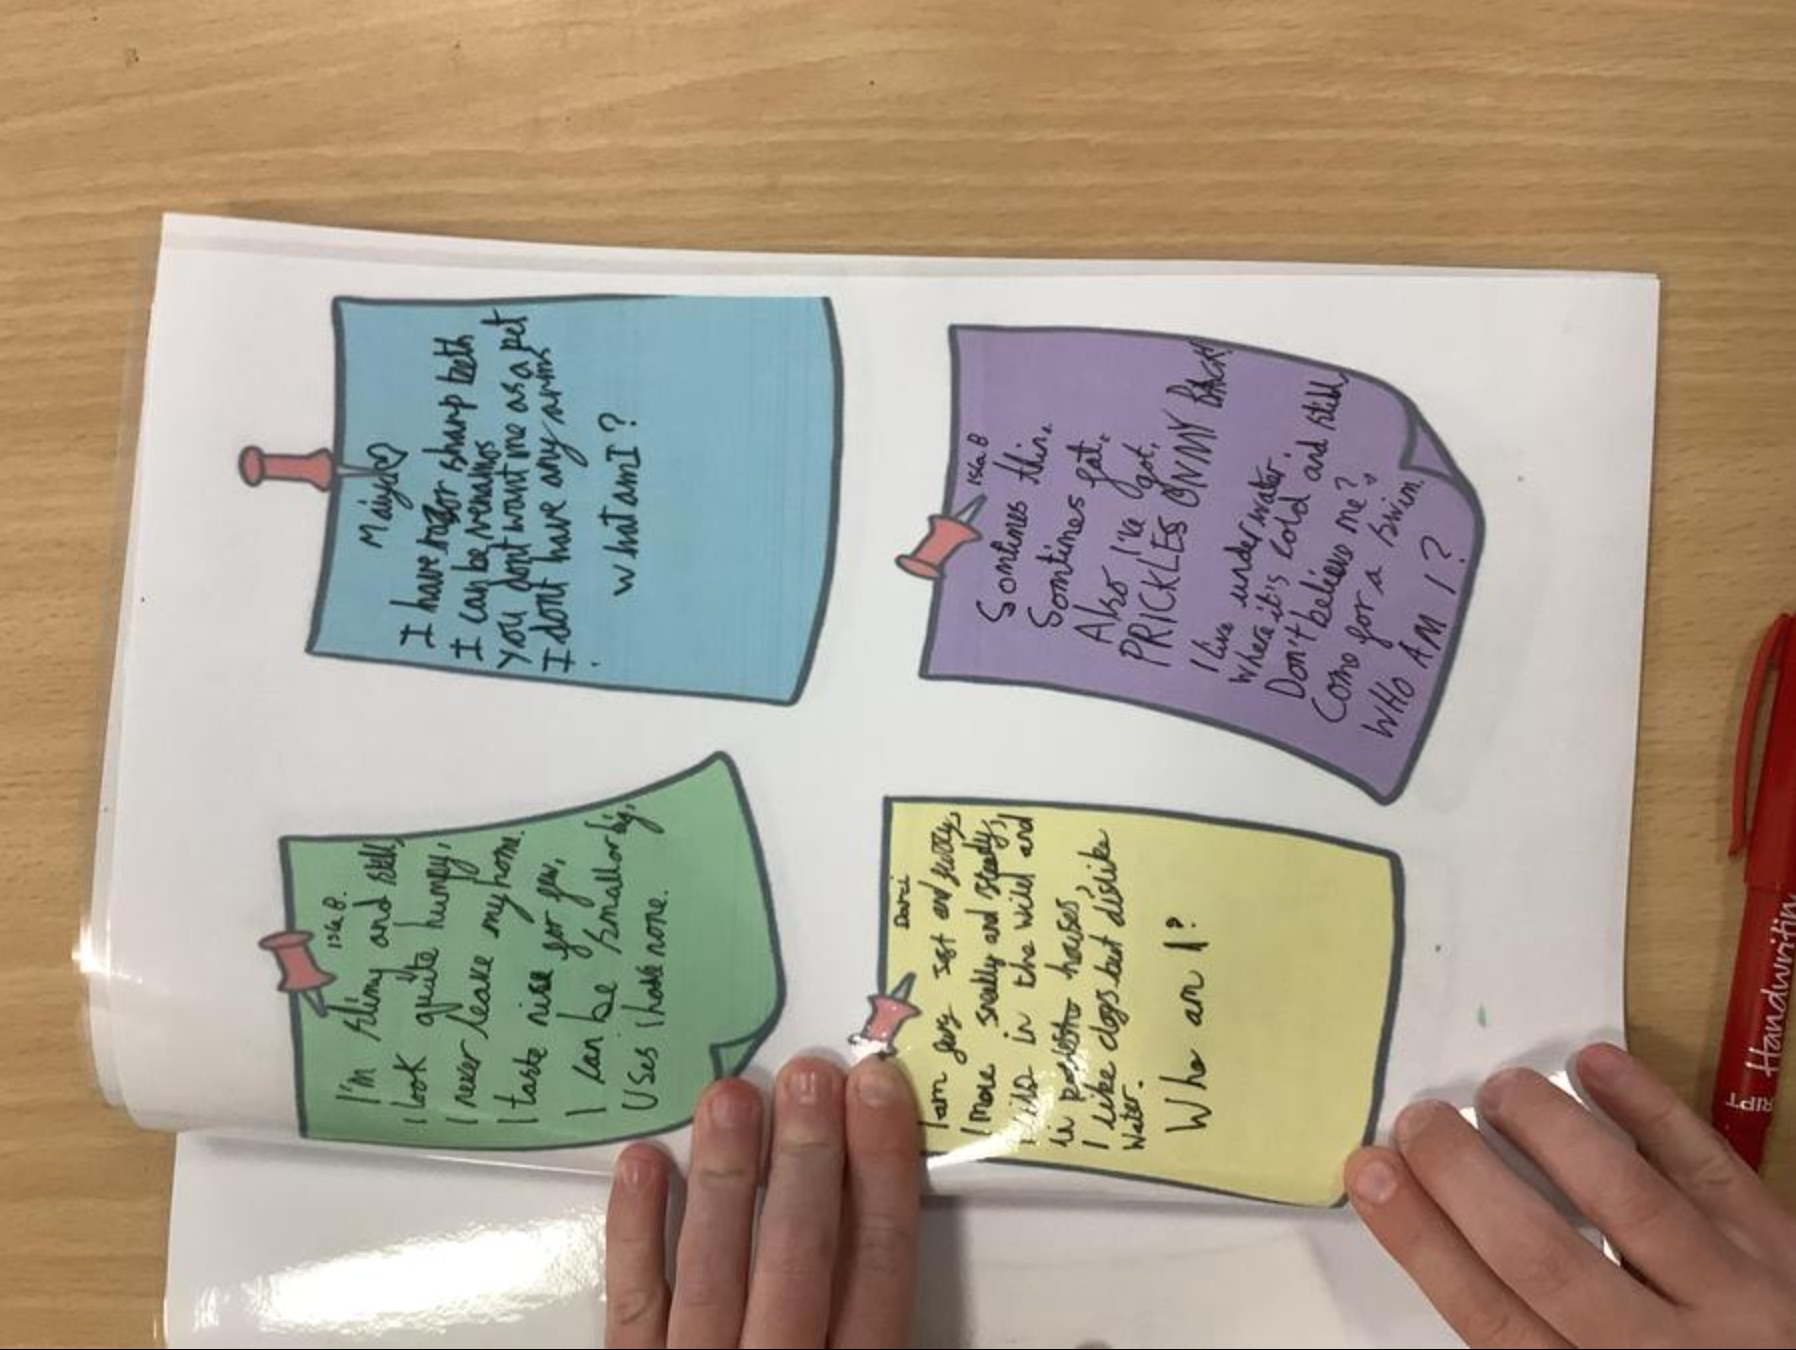 Isla B.
I'm slimy and still,
I look quite humpy,
I never leave my home.
I taste nise for few,
I can be small or big,
Uses I have none.
Maisy
I have razor sharp teeth
I can be venamos
You dont want me as a pet
I dont have any arms
.
what am I?
Darci
I am grey soft and
I move and steady,
in the wild and
in houses
I like dogs but dislike
water.
Who am I?
Isla B
Somtimes thin.
Somtimes fat.
Also I've got,
PRICKLES ON MY BACK!
I live under water.
Where it's cold and still,
Don't believe me?
Come for a swim.
WHO AM I?
Handwritin